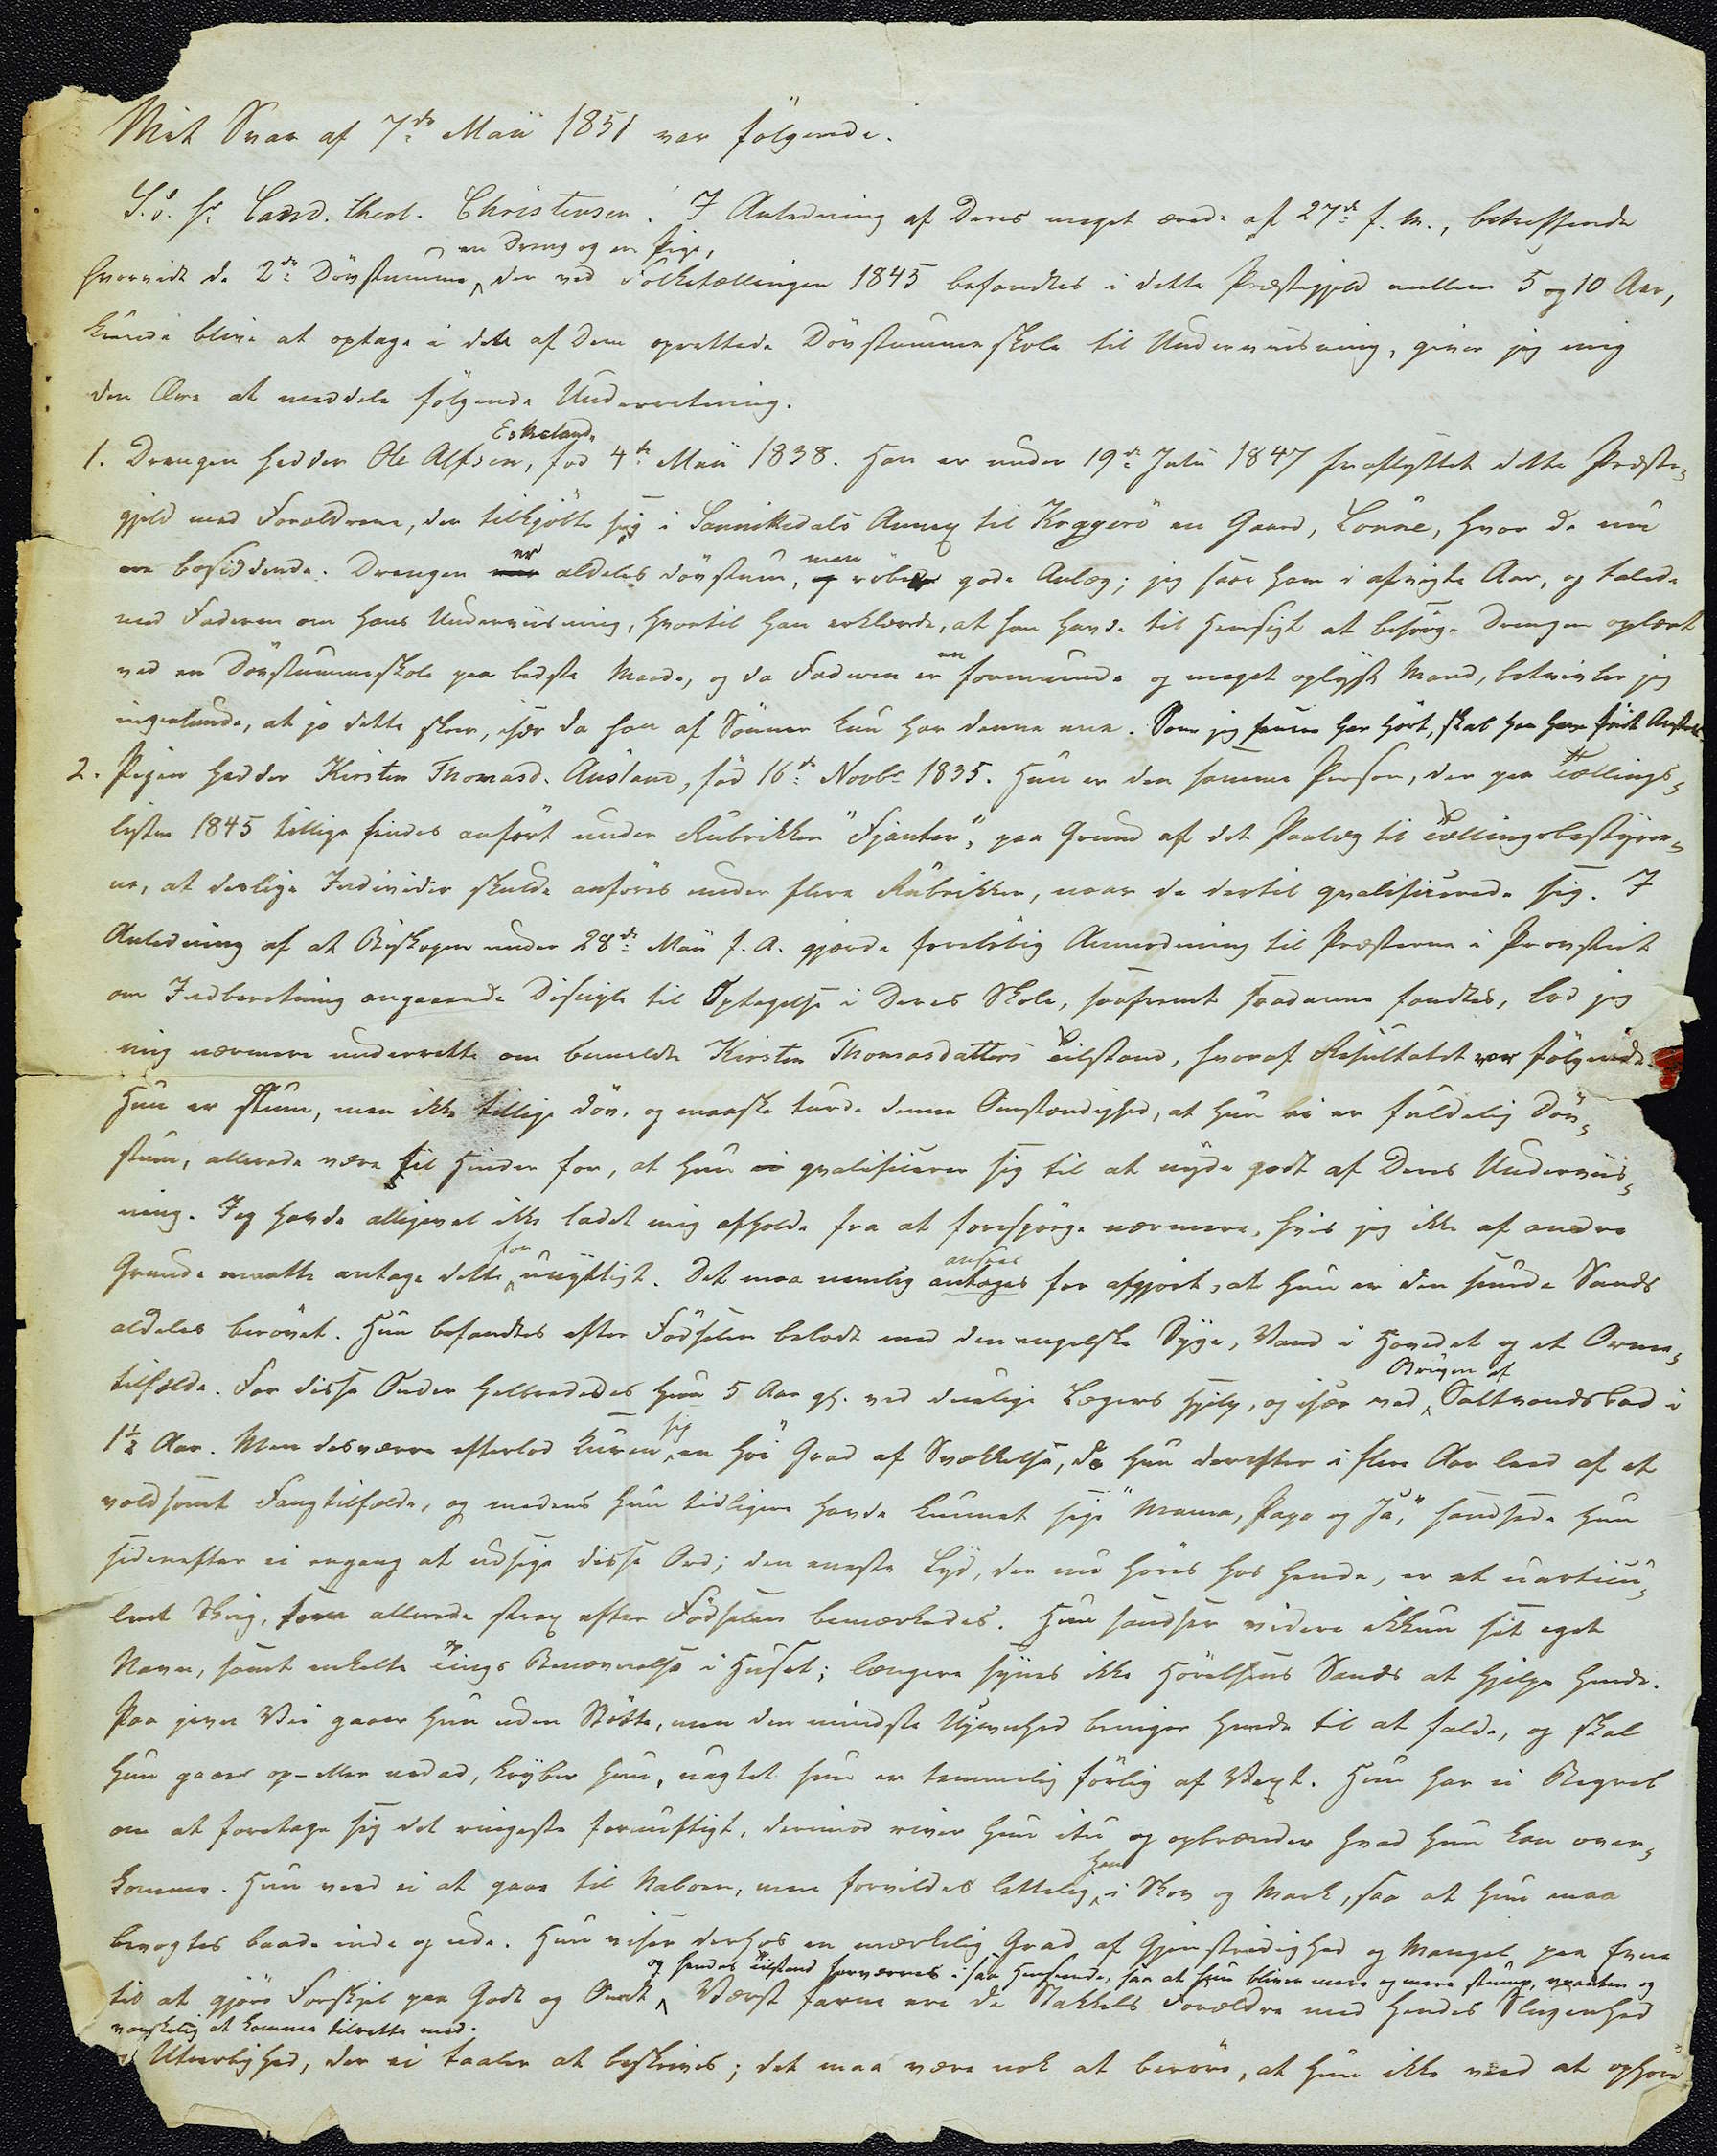 Mit Svar af 7de Maii 1851 var følgende.
S. T. Hr. Cand. theol. Christensen! I Anledning af Deres meget ærede af 27de f. M., betreffende
en Dreng og en Pige,
hvorvidt de 2de Døvstumme, der ved Folketællingen 1845 befandtes i dette Præstegjeld mellem 5 og 10 Aar,
kunde blive at optage i det af Dem oprettede Døvstummeskole til Underviisning, giver jeg mig
den Ære at meddele følgende Underretning.
Eskeland,
1. Drengen hedder Ole Alfsen, fød 4de Maii 1838. Han er under 19de Julii 1847 fraflyttet dette Præste-
gjeld med Forældrene, der tilkjøbte sig i Sannikedals Annex til Kragerø en Gaard, Lønne, hvor de nu
ere bosiddende. Drengen er aldeles døvstum, men røber gode Anlæg; jeg saae ham i afvigte Aar, og talede
med Faderen om hans Underviisning, hvortil han erklærede, at han havde til Hensigt at besørge Drengen oplært
ved en Døvstummeskole paa bedste Maade, og da Faderen er en formuende og meget oplyst Mand, betvivler jeg
ingenlunde, at jo dette skeer, især da han af Sønner kun har denne ene. Som jeg senere har hørt, skal han have
2. Pigen hedder Kirsten Thomasd. Ausland, fød 16de Novbr 1835. Hun er den samme Person, der paa Tællings-
listen 1845 tillige findes anført under Rubrikken "Fjanter", paa Grund af det Paalæg til Tællingsbestyrer-
ne, at deslige Individer skulde anføres under flere Rubrikker, naar de dertil qvalificerede sig. I
Anledning af at Biskopen under 28de Maii f. A. gjorde foreløbig Anmodning til Præsterne i Provstiet
om Indberetning angaaende Disciple til Optagelse i Deres Skole, saafremt saadanne fandtes, lod jeg
mig nærmere underrette om bemeldte Kirsten Thomasdatters Tilstand, hvoraf Resultatet var følgende.
Hun er stum, men ikke tillige døv, og maaske turde denne Omstændighed, at hun ei er fuldelig døv-
stum, allerede være til Hinder for, at hun ei qvalificerer sig til at nyde godt af Deres Underviis-
ning. Jeg havde alligevel ikke ladet mig afholde fra at forespørge nærmere, hvis jeg ikke af andre
for ansees
Grunde maatte antage dette unyttigt. Det maa nemlig antages for afgjort, at hun er den sunde Sands
aldeles berøvet. Hun befandtes efter Fødselen beladt med den engelske Syge, Vand i Hovedet og et Orme-
Brugen af
tilfælde. For disse Onder helbrededes hun 5 Aar gl. ved duelige Lægers Hjelp, og især ved Saltvandsbad i
sig
1½ Aar. Men desværre efterlod Kuren en høi Grad af Svækkelse, da hun derefter i flere Aar leed af et
voldsomt Fangtilfælde, og medens hun tidligere havde kunnet sige "Mama, Papa og Ja," sandsede hun
sidenefter ei engang at udsige disse Ord; den eneste Lyd, der nu høres hos hende, er et uarticu-
leret Skrig, som allerede strax efter Fødselen bemærkedes. Hun sandser videre ikkun sit eget
Navn, samt enkelte Tings Benævnelse i Huset; længere synes ikke Hørelsens Sands at hjelpe hende.
Paa jevn Vei gaaer hun uden Støtte, men den mindste Ujevnhed bringer hende til at falde, og skal
hun gaae op- eller nedad, kryber hun, uagtet hun er temmelig førlig af Vext. Hun har ei Begreb
om at foretage sig det ringeste fornuftigt, derimod river hun itu og opbrænder hvad hun kan over-
hen
komme. Hun veed ei at gaae til Naboen, men forvildes lettelig i Skov og Mark, saa at hun maa
bevogtes baade inde og ude. Hun viser derhos en mærkelig Grad af Gjenstridighed og Mangel paa Evne
og hendes Tilstand forværres i saa Henseende, saa at hun bliver mere og mere stump, vranten og
til at gjøre Forskjel paa Godt og Ondt. Værst farne ere de Stakkels Forældre med hendes Slugenhed
vanskelig at komme tilrette med.
Uterlighed, der ei taaler at beskrives; det maa være nok at berøre, at hun ikke veed at ophøre